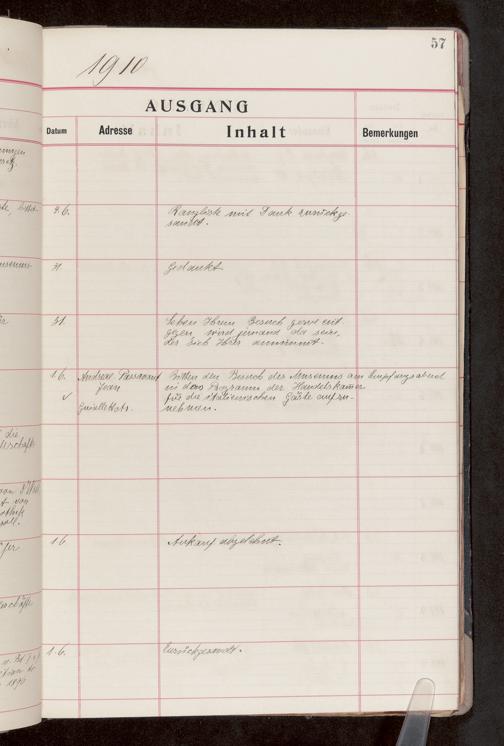 57
1910
AUSGANG
Datum Adresse Inhalt Bemerkungen
9.6. Rangliste mit Dank zurückge-
sandt.
31. Gedankt
31. Sehen Ihrem Besuch gerne ent-
gegen wird jemand da sein,
der sich Ihrer annimmt.
1.6. Andreae Passavant Bitten den Besuch des Museums am Empfangsabend
Jean in das Programm der Handelskammer
für die italienischen Gäste aufzu-
Guiollettstr. nehmen.
1.6 Ankauf abgelehnt.
1.6. Zurückgesandt.